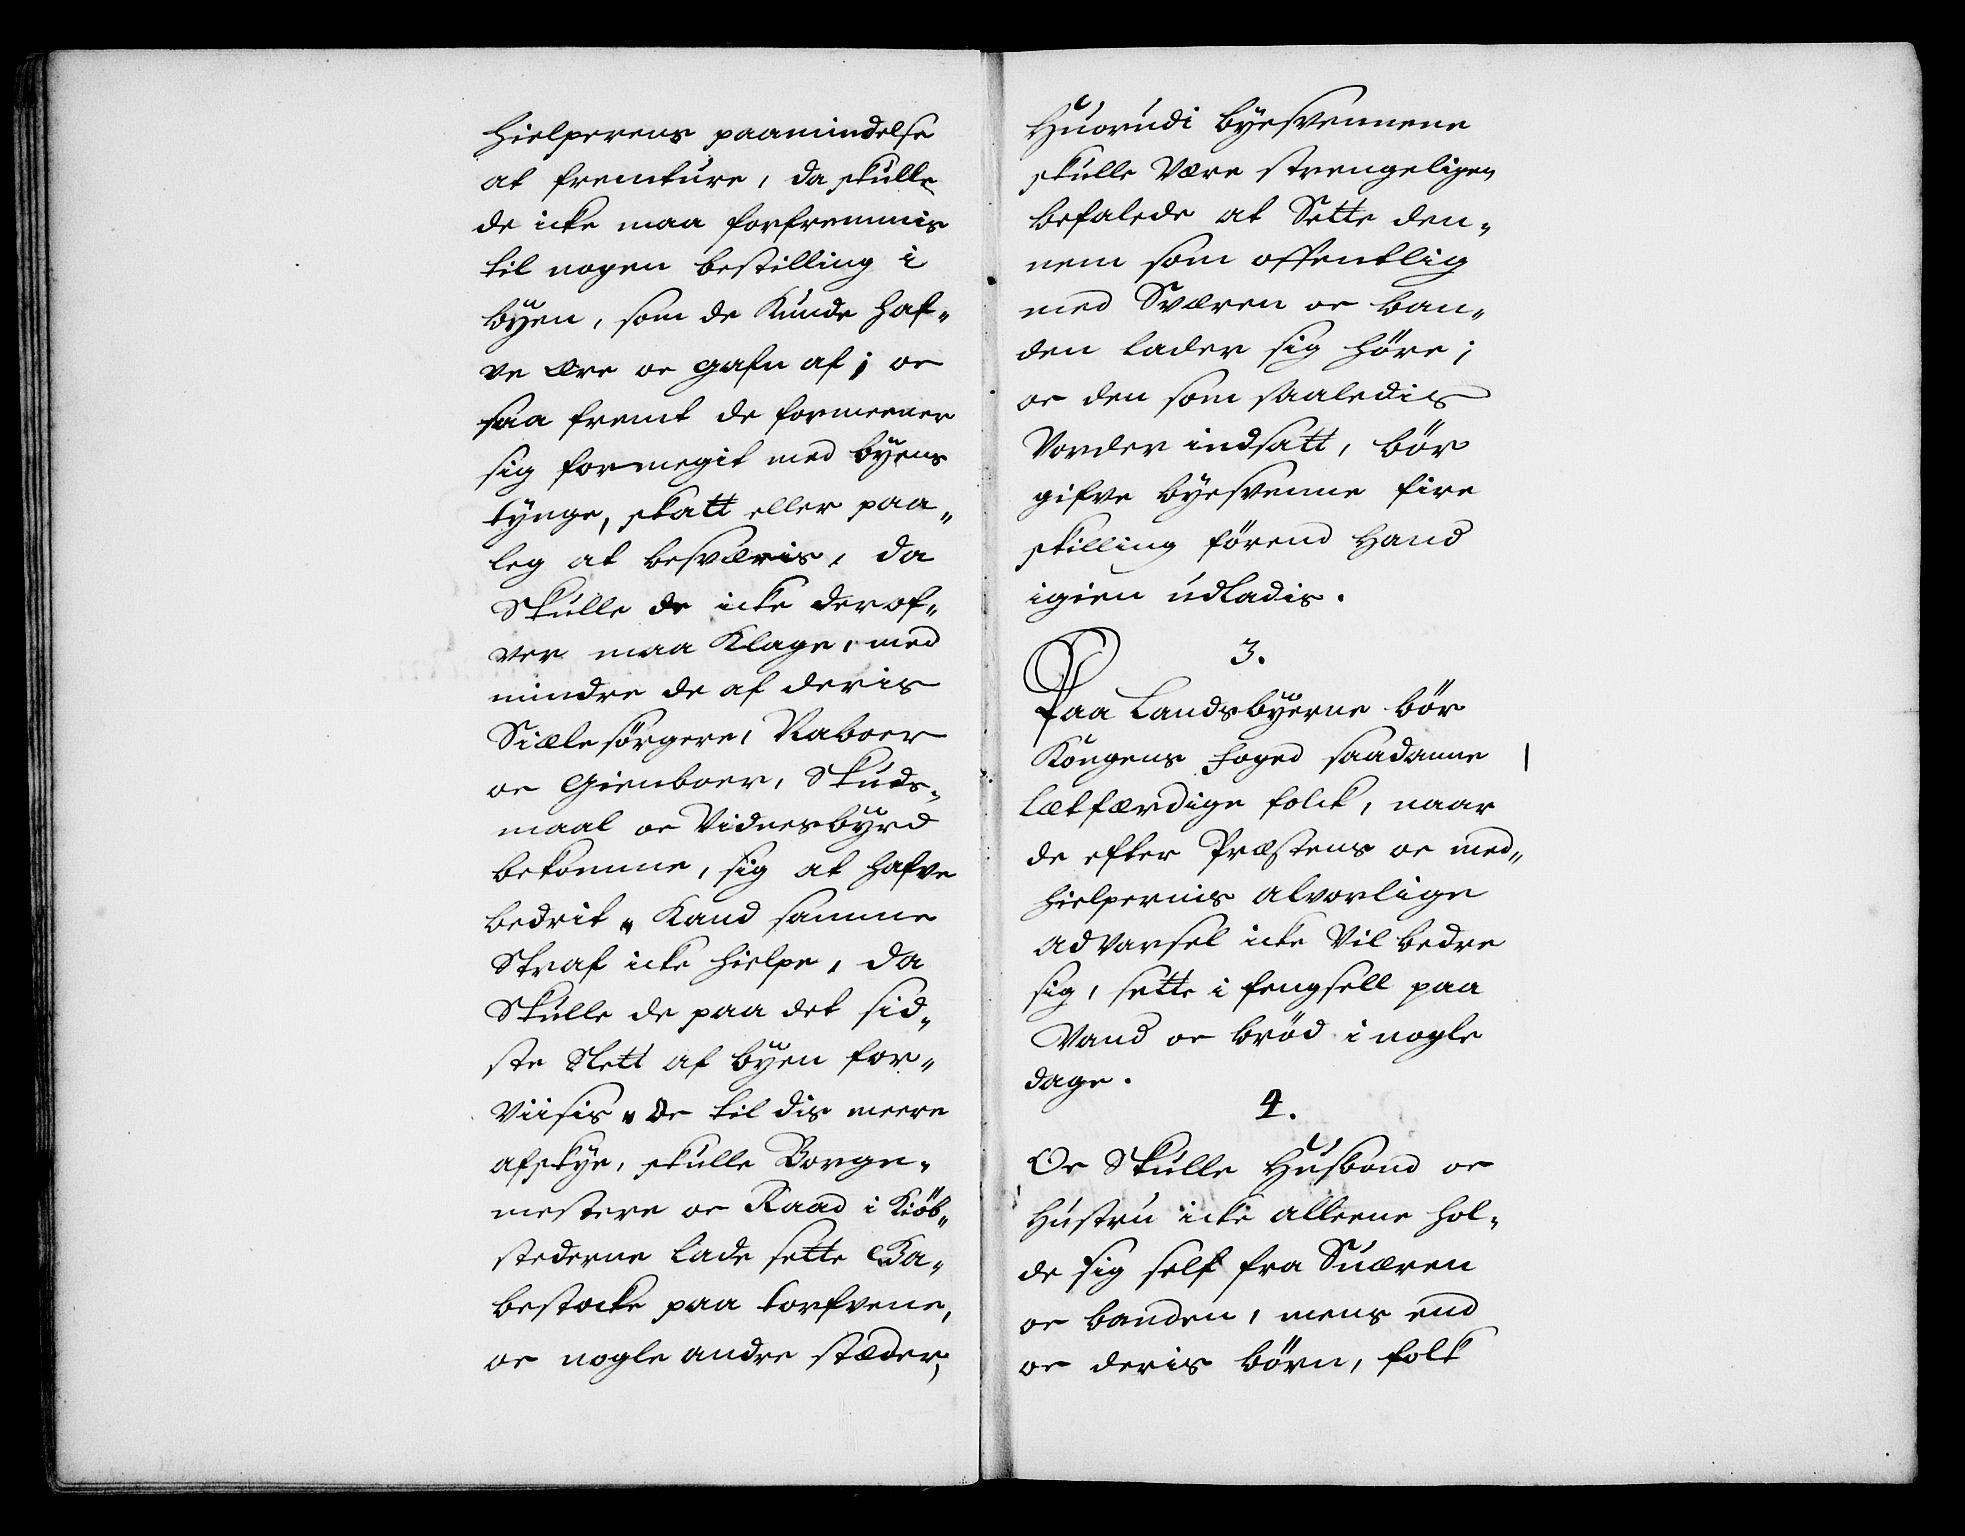 hielperens paamindelse
at fremture, da skulle
de icke maa forfremmis
til nogen bestilling i
byen, som de kunde haf„
ve ære oc gafn af; oc
saa fremt de formeener
sig formegit med byens
tynge, skatt eller paa„
leg at besværis, da
Skulle de icke derof„
ver maa Klage, med
mindre de af deris
Siælesørgere, Naboer
oc Gienboer, Skuds„
maal oc Vidnesbyrd
bekomme, sig at hafve
bedrit. Kand samme
Straf icke hielpe, da
Skulle de paa det sid„
ste Slett af byen for„
Viisis. Oc til dis meere
afskye, skulle Borge„
mestere oc Raad i Kiöb„
stederne lade sette Ga„
bestocke paa torfvene,
oc nogle andre stæder,
Huorudi byesvennene
skulle Være strengeligen
befalede at Sette den„
nem som offentlig
med Sværen oc ban„
den lader sig høre;
oc den som saaledis
Vorder indsatt, bør
gifve byesvenne fire
skilling förend Hand
igien udladis.
3.
Paa Landsbyerne bör
Kongens Foged saadanne
lætfærdige folck, naar
de efter Præstens oc med„
hielpernis alvorlige
advarsel icke Vil bedre
sig, sette i fengsell paa
Vand oc bröd i nogle
dage.
4.
Oc Skulle Husbond oc
Hustru icke alleene hol„
de sig self fra Suæren
oc banden, mens end
oc deris börn, folk